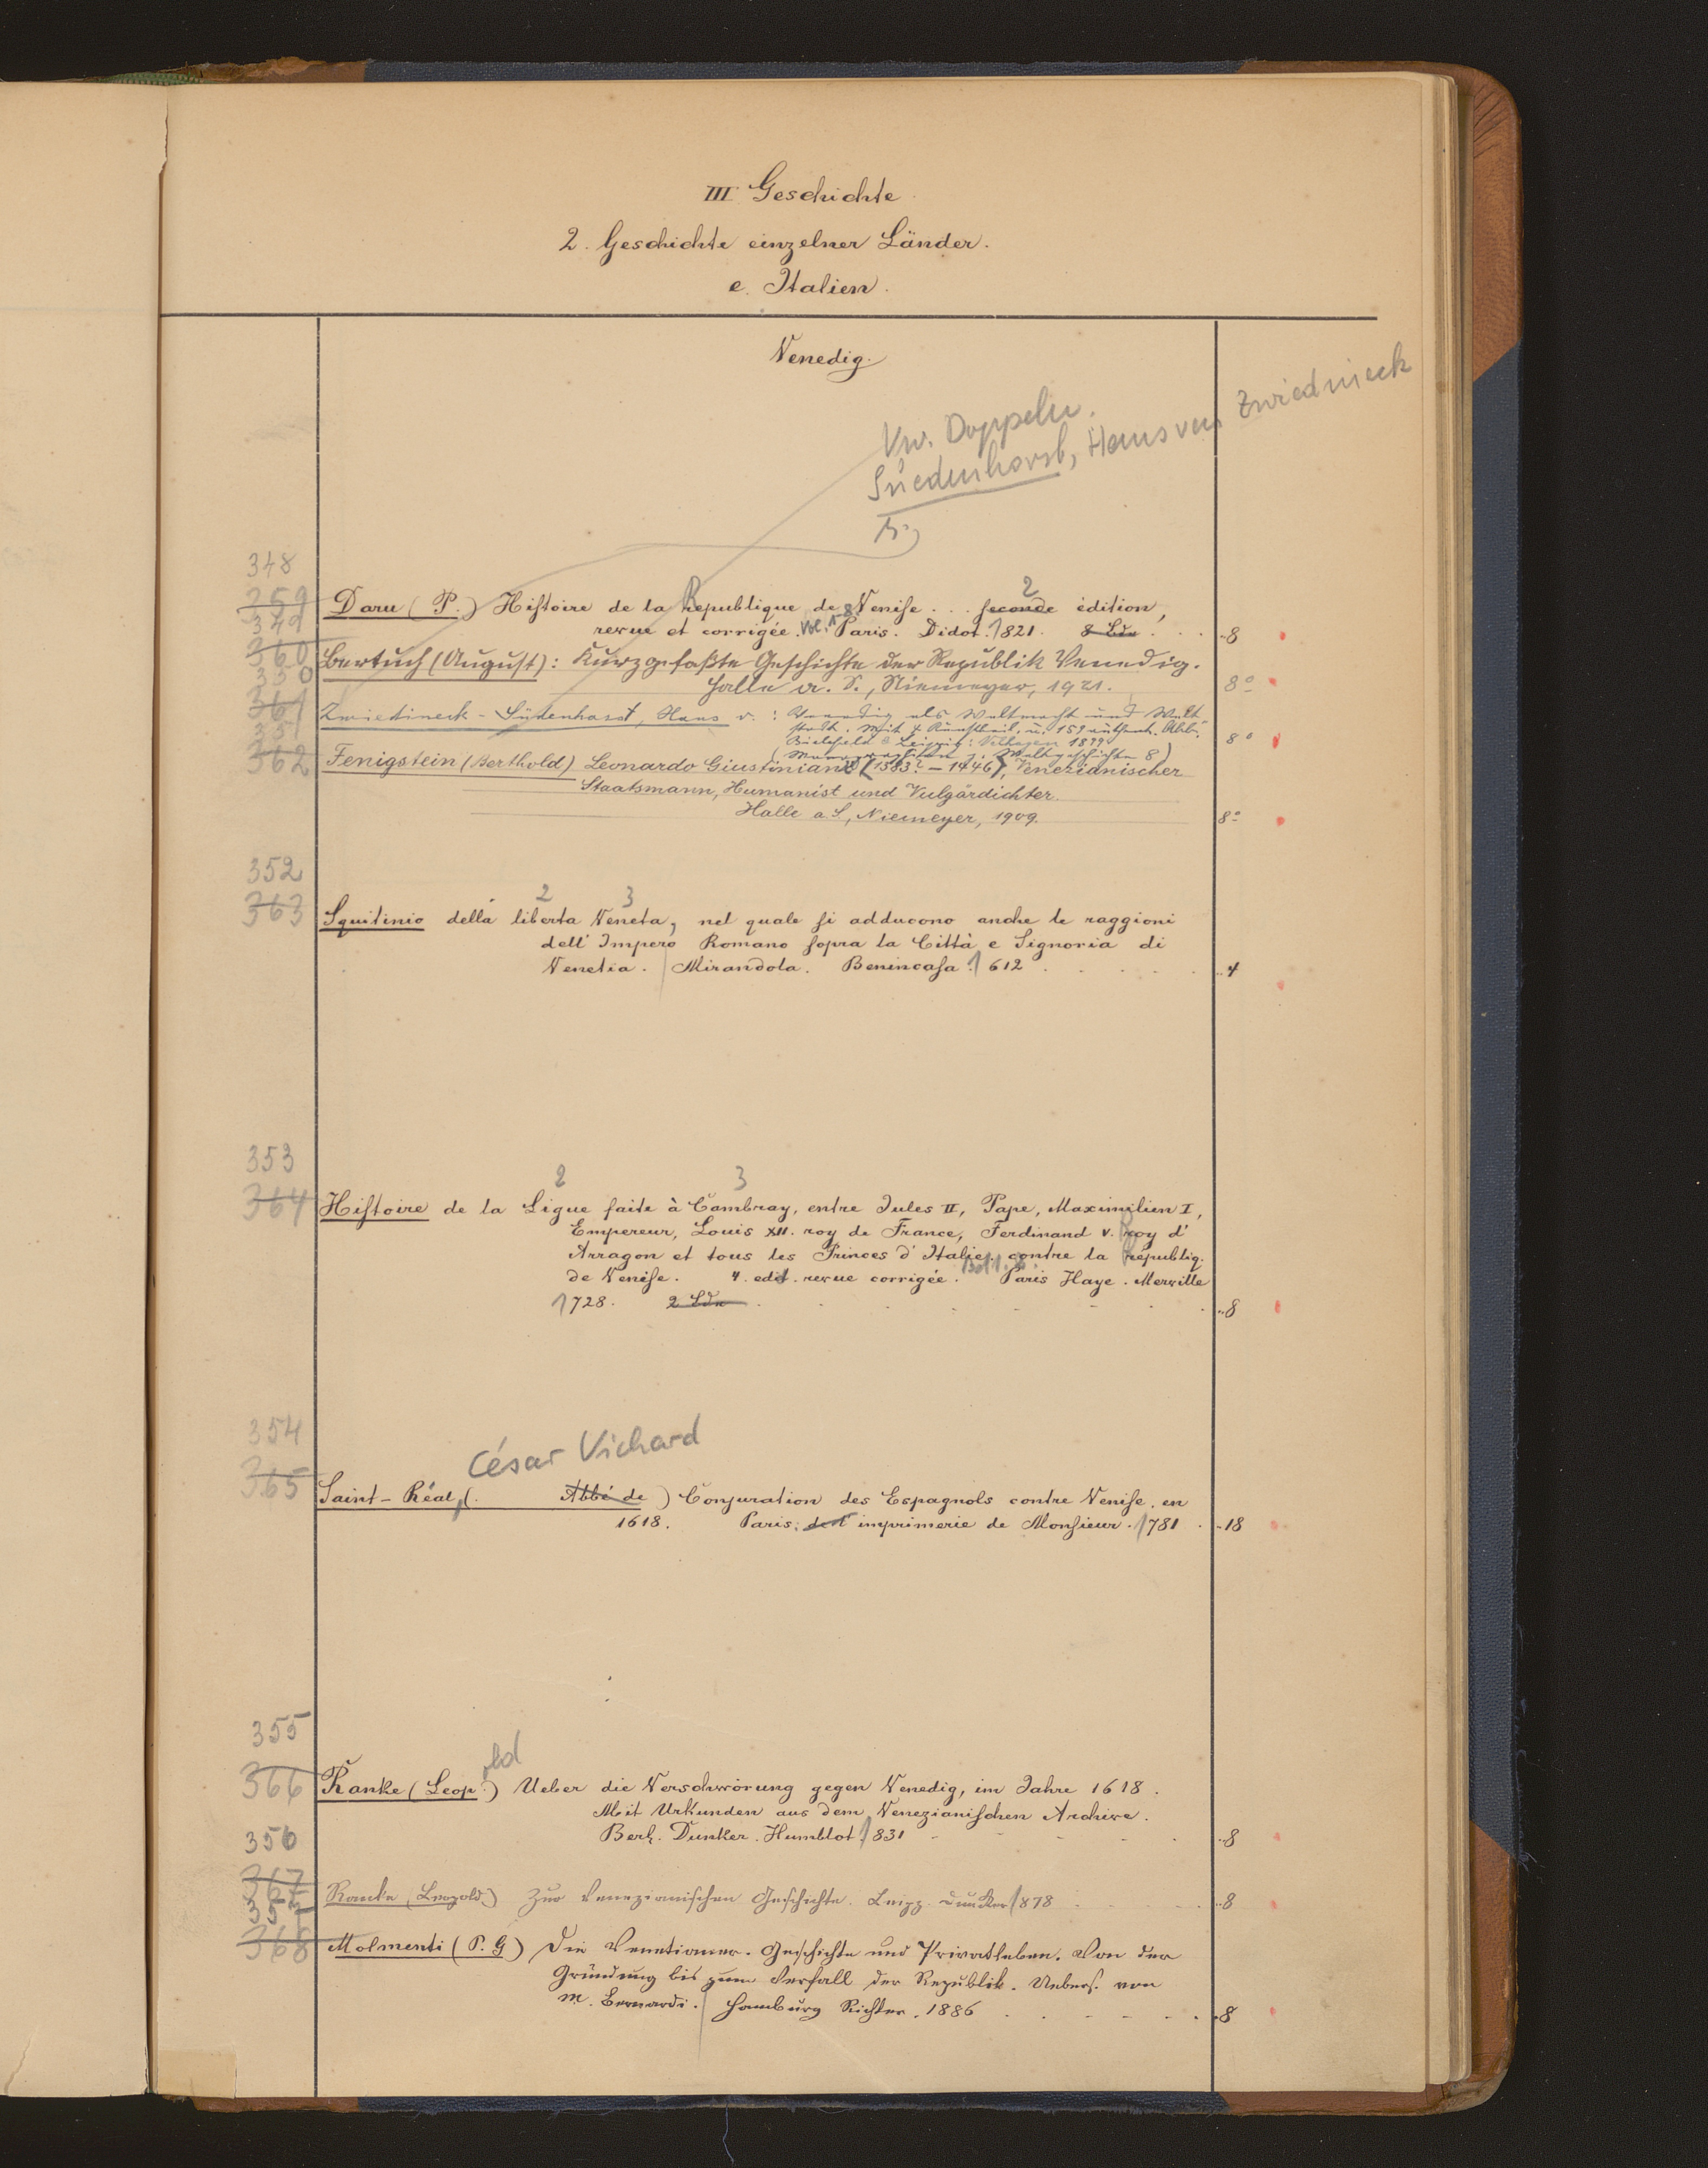 III Geschichte.
2. Geschichte einzelner Länder.
e. Italien.
Venedig.
Vw. Doppeln.
Südenhorst, Hans von Zwiednieck
348
359
Daru (P.) Hiſtoire de la Republique de Veniſe . . . ſeconde édition, 2
revue et corrigée. Vol. 1-8 Paris. Didot. 1821. 8 Bde . . . 8
349
360
Bertuch (August): Kurzgefaßte Geschichte der Republik Venedig.
Halle a. S., Niemeyer, 1921. 8°
350
361
Zwiedineck-Südenhorst, Hans v.: Venedig als Weltmacht und Welt
stadt. Mit 4 Kunstbeil. u. 159 authent. Abb.
Bielefeld & Leipzig: Velhagen 1899 8°
(Monographien z. Weltgeschichte 8)
351
362
Fenigstein (Berthold) Leonardo Giustiniani (1383?-1446), Venezianischer
Staatsmann, Humanist und Vulgärdichter.
Halle a. S, Niemeyer, 1909. 8°
352
2 3
363
Squitinio della liberta Veneta, nel quale ſi adducono anche le raggioni
dell' Impero Romano ſopra la Città e Signoria di
Venetia. Mirandola. Benincaſa. 1612 . . . 4
353
2 3
364
Hiſtoire de la Ligue faite à Cambray, entre Jules II, Pape, Maximilien I,
Empereur, Louis XII. roy de France, Ferdinand V. Roy d'
Arragon et tous les Princes d'Italie. contre la Républiq.
de Veniſe. 4. edit. revue corrigée. Paris Haye. Merville
1728. 2 Bde . . . 8
354
César Vichard
365
Saint-Réal, ( Abbé de ) Conjuration des Espagnols contre Veniſe. en
1618. Paris. de l' imprimerie de Monſieur. 1781 . 18
355
old
366
Ranke (Leop.) Ueber die Verschwörung gegen Venedig, im Jahre 1618.
Mit Urkunden aus dem Venezianiſchen Archive.
Berl. Dunker. Humblot. 1831 . . . 8
356
367
Ranke (Leopold) Zur Venezianischen Geschichte. Leipz. Duncker 1878 . . . 8
357
368
Molmenti (P. G) Die Venetianer. Geschichte und Privatleben. Von der
Gründung bis zum Verfall der Republik. Uebers. von
M. Bernardi. Hamburg Richter. 1886 . . . 8